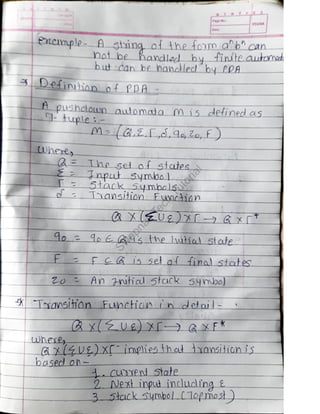 Example - A string of the form aⁿbⁿ can
not be handled by finite automata
but can be handled by PDA
* Definition of PDA -
A pushdown automata M is defined as
7- tuple : -
M = (Q, Σ, Γ, δ, q0, z0, F)
Where,
Q = The set of states
Σ = Input symbol
Γ = Stack symbols
δ = Transition Function
Q X (Σ U Ɛ) X Γ → Q X Γ*
q0 = q0 ∈ Q is the Initial state
F = F ⊆ Q is set of final states
z0 = An Initial stack symbol
* Transition Function in detail - :
Q X (Σ U Ɛ) X Γ → Q X Γ*
where,
Q X (Σ U Ɛ) X Γ implies that transition is
based on -
1. current state
2. Next input including Ɛ
3. stack symbol (Topmost)